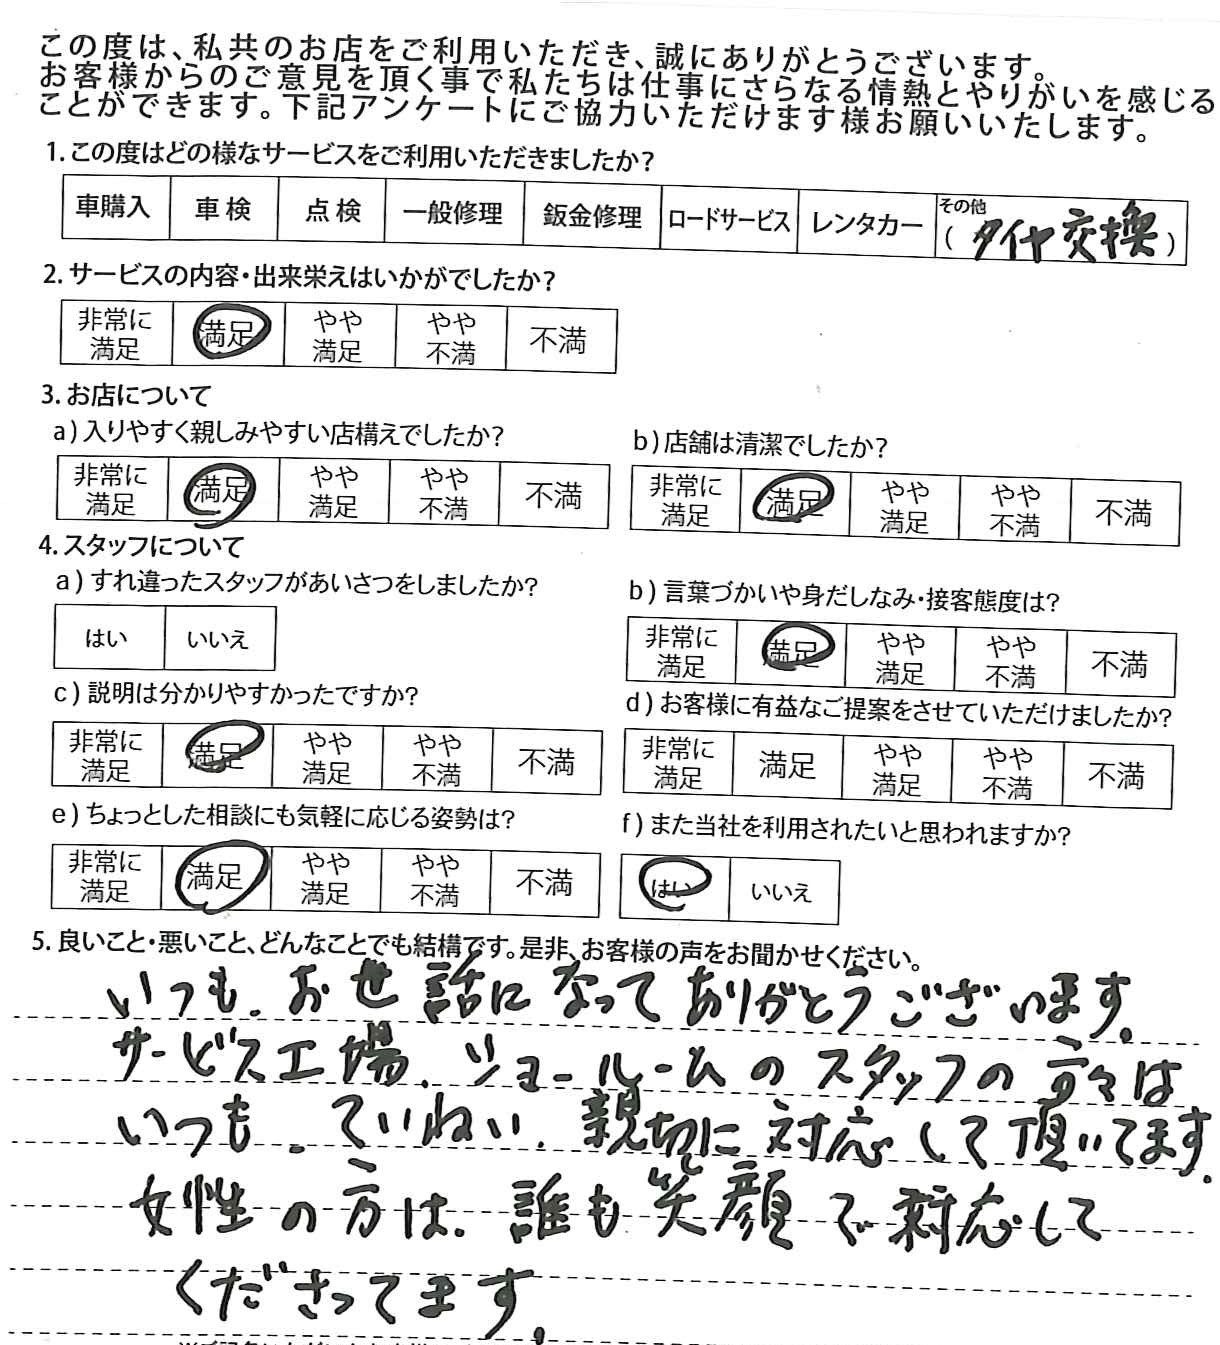 この度は、私共のお店をご利用いただき、誠にありがとうございます。
お客様からのご意見を頂く事で私たちは仕事にさらなる情熱とやりがいを感じる
ことができます。下記アンケートにご協力いただけます様お願いいたします。
1. この度はどの様なサービスをご利用いただきましたか?
車購入 車検 点検 一般修理 鈑金修理 ロードサービス レンタカー その他
(タイヤ交換)
2. サービスの内容・出来栄えはいかがでしたか?
非常に満足 満足 やや満足 やや不満 不満
3. お店について
a) 入りやすく親しみやすい店構えでしたか?
非常に満足 満足 やや満足 やや不満 不満
b) 店舗は清潔でしたか?
非常に満足 満足 やや満足 やや不満 不満
4. スタッフについて
a) すれ違ったスタッフがあいさつをしましたか?
はい いいえ
b) 言葉づかいや身だしなみ・接客態度は?
非常に満足 満足 やや満足 やや不満 不満
c) 説明は分かりやすかったですか?
非常に満足 満足 やや満足 やや不満 不満
d) お客様に有益なご提案をさせていただけましたか?
非常に満足 満足 やや満足 やや不満 不満
e) ちょっとした相談にも気軽に応じる姿勢は?
非常に満足 満足 やや満足 やや不満 不満
f) また当社を利用されたいと思われますか?
はい いいえ
5. 良いこと・悪いこと、どんなことでも結構です。是非、お客様の声をお聞かせください。
いつも、お世話になってありがとうございます。
サービス工場、ショールームのスタッフの方々は
いつも、ていねい、親切に対応して頂いてます。
女性の方は、誰も笑顔で対応して
くださってます。